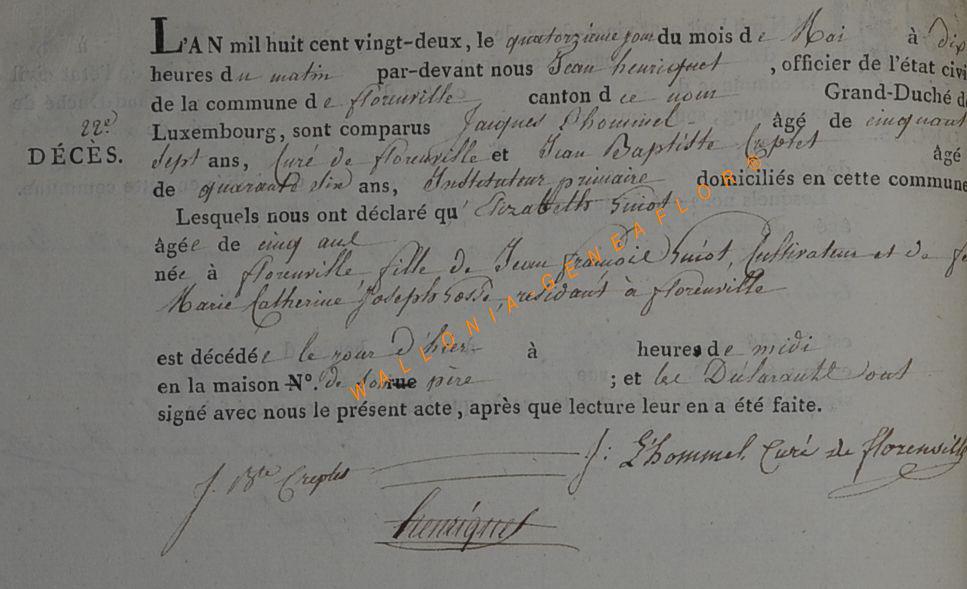 L'AN mil huit cent vingt-deux, le quatorzieme jour du mois de Mai à dix
heures du matin par-devant nous Jean henriquet, officier de l'état civi
de la commune de florenville canton de ce nom Grand-Duché d
22e
DÉCÈS.
Luxembourg, sont comparus Jacques Lhommel âgé de cinquant
sept ans, Curé de florenville et Jean Baptiste Creplet âgé
de quarante six ans, Instituteur primaire domiciliés en cette commune
Lesquels nous ont déclaré qu' Elizabeth Guiot
âgée de cinq ans
née à florenville, fille de Jean françois Guiot, Cultivateur et de fe
Marie Catherine Joseph Gosse, residant à florenville
est décédée le jour d'hier à heures de midi
en la maison N°. de son rue père ; et les Déclarants ont
signé avec nous le présent acte, après que lecture leur en a été faite.
J. Bte Creplet
J: L'hommel Curé de florenville
henriquet
WALLONIA GENEAFLORE